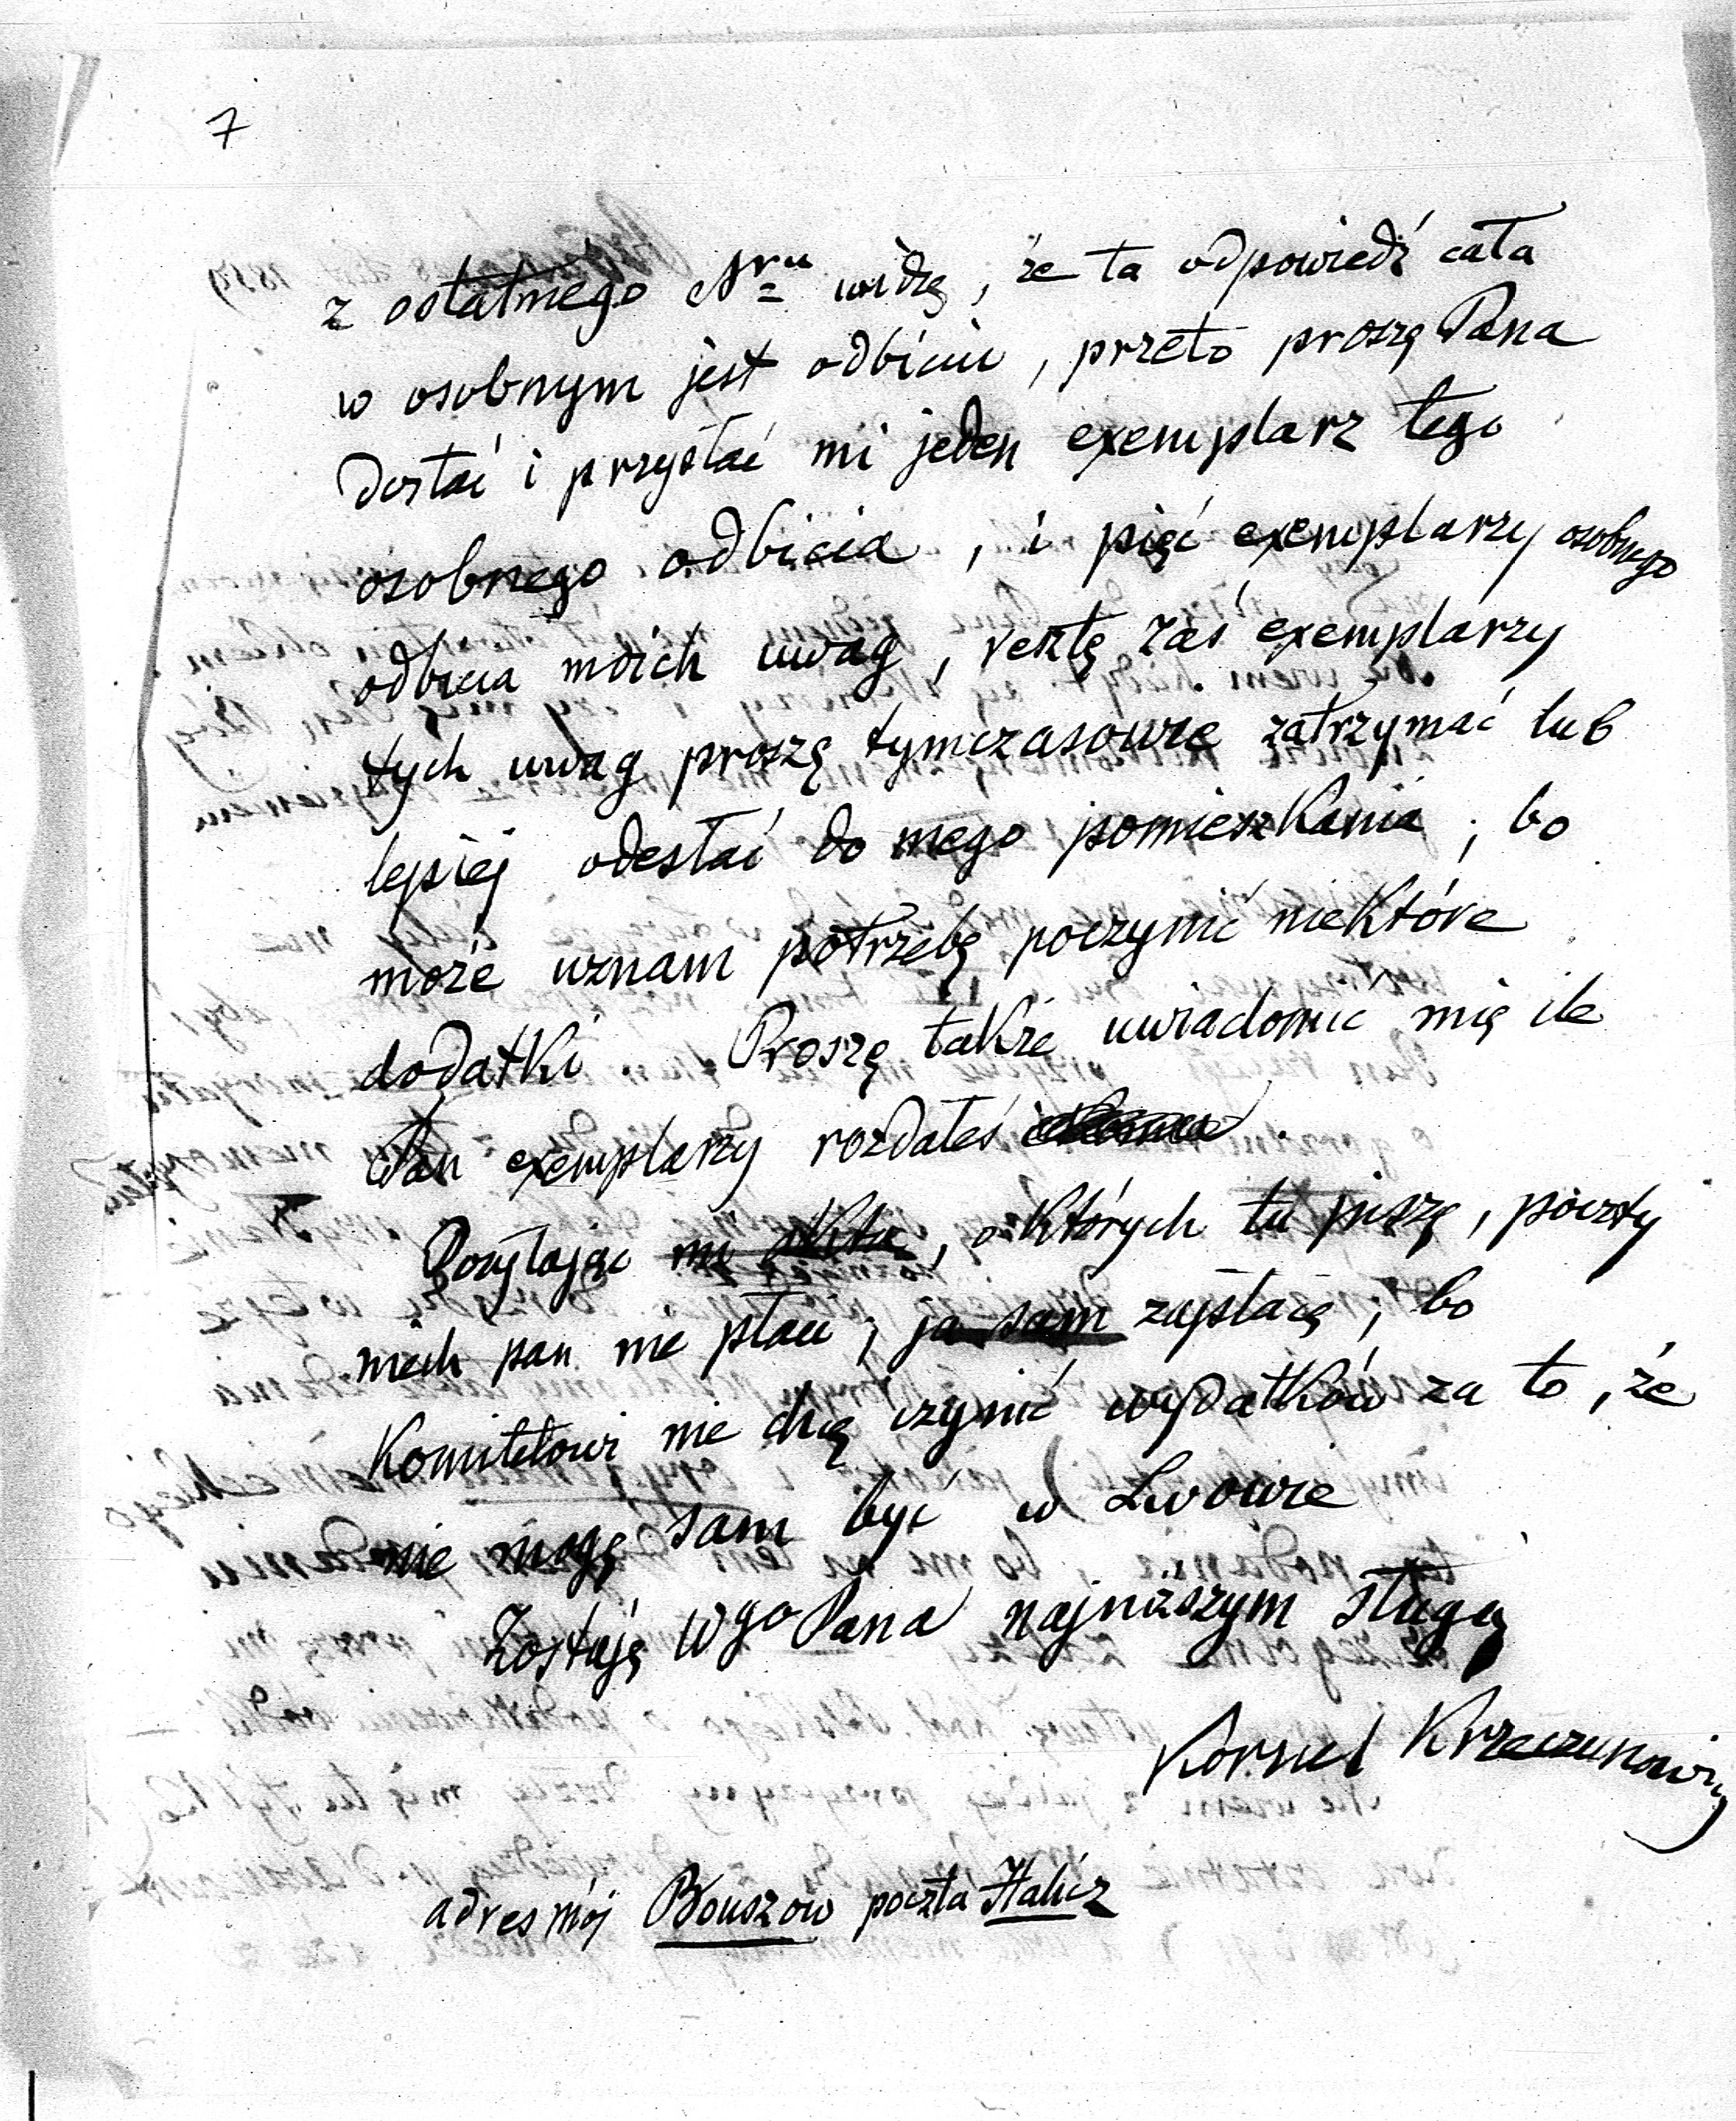 7
z ostatniego Nru widzę, że ta odpowiedź cała
w osobnym jest odbiciu, przeto proszę Pana
dostać i przysłać mi jeden exemplarz tego
osobnego odbicia, i pięć exemplarzy osobnego
odbicia moich uwag, resztę zaś exemplarzy
tych uwag proszę tymczasowie zatrzymać lub
lepiej odesłać do mego pomieszkania; bo
może uznam potrzebę poczynić niektóre
dodatki. Proszę także uwiadomić mię ile
Pan exemplarzy rozdałeś.
Posyłając, o których tu piszę, poczty
niech pan nie płaci; ja sam zapłacę; bo
Komitetowi nie chcę czynić wydatków za to, że
nie mogę sam być w Lwowie
Zostaję Wgo Pana najniższym sługą
Kornel Krzeczunowicz
adres mój Bouszow poczta Halicz